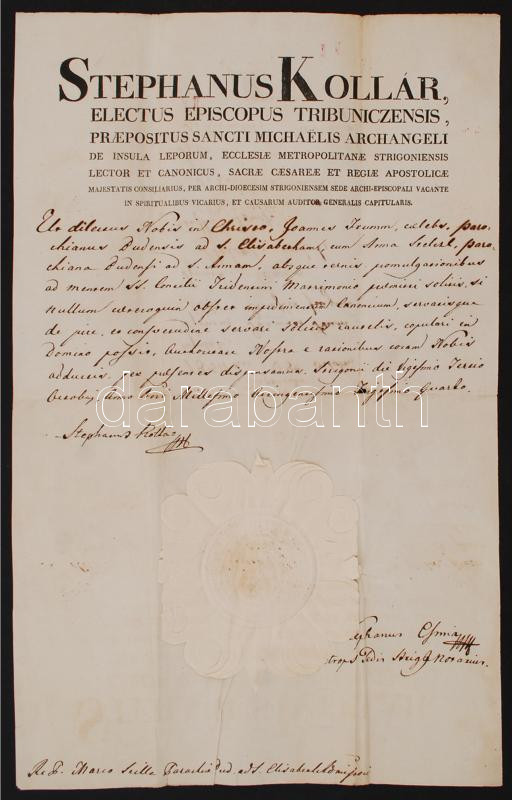 STEPHANUS KOLLÁR,
ELECTUS EPISCOPUS TRIBUNICZENSIS,
PRÆPOSITUS SANCTI MICHAËLIS ARCHANGELI
DE INSULA LEPORUM, ECCLESIÆ METROPOLITANÆ STRIGONIENSIS
LECTOR ET CANONICUS, SACRÆ CÆSAREÆ ET REGIÆ APOSTOLICÆ
MAJESTATIS CONSILIARIUS, PER ARCHI-DIOECESIM STRIGONIENSEM SEDE ARCHI-EPISCOPALI VACANTE
IN SPIRITUALIBUS VICARIUS, ET CAUSARUM AUDITOR GENERALIS CAPITULARIS.
Ut dilectus Nobis in Christo, Joannes caelebs, paro-
chianus Budensis ad S. Elisabetham, cum Anna paro-
chiana Budensi ad S. Annam, absque ternis promulgationibus
ad mentem SS. Concilii Tridentini Matrimonio praemitti solitis, si
nullum utrocunque obstet impedimentum Canonicum, servatisque
de jure, et consvetudine servari solitis cautelis, copulari in
Domino possit, Authoritate Nostra e rationibus coram Nobis
adductis, per praesentes dispensamus. Strigonii die Vigesimo Tertio
Octobris Anno Domini Millesimo Octingentesimo Vigesimo Quarto.
Stephanus Kollar
Darabanth
ephanus
Sedis Strig Notarius.
Marco Parocho ad S. Elisabetham